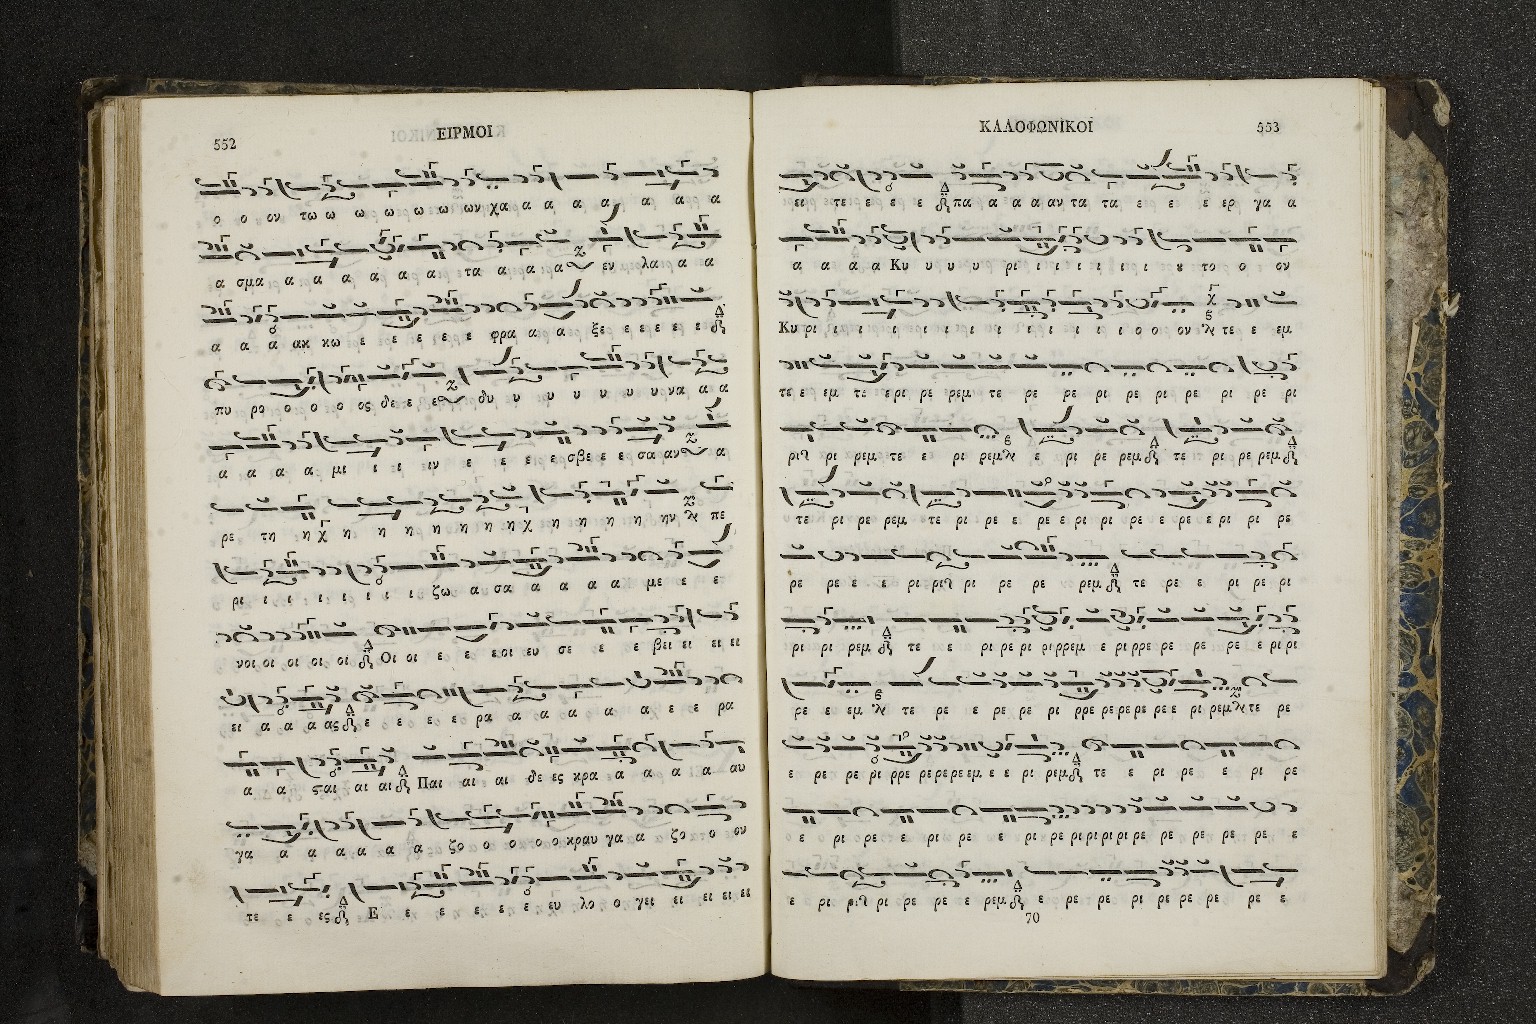 552
ΕΙΡΜΟΙ
ο ο ον τω ω ω ω ω ω ων χα α α α α α α α
α σμα α α α α α α τα α α α εν λα α α
α α α ακ κω ε ε ε ε ε φρα α α ξε ε ε ε ε ε
πυ ρο ο ο ο ος δε ε ε δυ υ υ υ υ υ υ να α α
α α α α μι ι ι ιν ε ε ε ε σβε ε ε σα αν α
ρε τη η χ η η η η η η η χ η η η η ην πε
ρι ι ι ι ι ι ι ι ζω α σα α α α α με ε ε
νοι οι οι οι οι οι Οι οι ε ε ε οι ευ σε ε ε βει ει ει ει
ει α α α ας ε ε ε ε ε ρα α α α α α ε ε ρα
α α ςαι αι αι Παι αι αι δε ες κρα α α α α αυ
γα α α α α α α ζο ο ο ο ο κραυ γα α ζο ο ον
τε ε ες Ε ε ε ε ε ε ευ λο ο γει ει ει ει ει
ΚΑΛΟΦΩΝΙΚΟΙ
553
ει τε ε ε ε πα α α α αν τα τα ε ε ε ερ γα α
α α α α Κυ υ υ υ ρι ι ι ι ι ι ι ȣ το ο ον
Κυ ρι ι ι ι ι ι ι ι ι ι ι ι ι ι ο ο ον τε ε εμ
τε ε εμ τε ε ρι ρε ρεμ τε ρε ρε ρι ρε ρι ρε ρι ρε ρι
ρι ρι ρεμ τε ε ρι ρεμ ε ρι ρε ρεμ τε ρι ρε ρεμ
τε ρι ρε ρεμ τε ρι ρε ε ρε ε ρι ρι ρε ε ρε ε ρι ρι ρε
ρε ρε ε ε ρι ρι ρι ρε ρε ρεμ τε ρε ε ρι ρε ρι
ρι ρι ρεμ τε ε ρι ρε ρι ρι ρρεμ ε ρι ρρε ρε ρε ρε ε ρι ρι
ρε ε εμ τε ρε ε ρε ρε ρι ρρε ρε ρε ρε ρε ε ρι ρεμ τε ρε
ε ρε ρε ρι ρρε ρε ρε ρε εμ ε ε ρι ρεμ τε ε ρι ρε ε ρι ρε
ε ρι ρε ε ρι ρε ε ρι ρε ρι ρι ρι ρι ρε ρε ρε ρε ρε ε
ε ρι ρι ρι ρε ρε ε ρεμ ε ρε ρε ρι ρε ρε ρε ρε ε
70